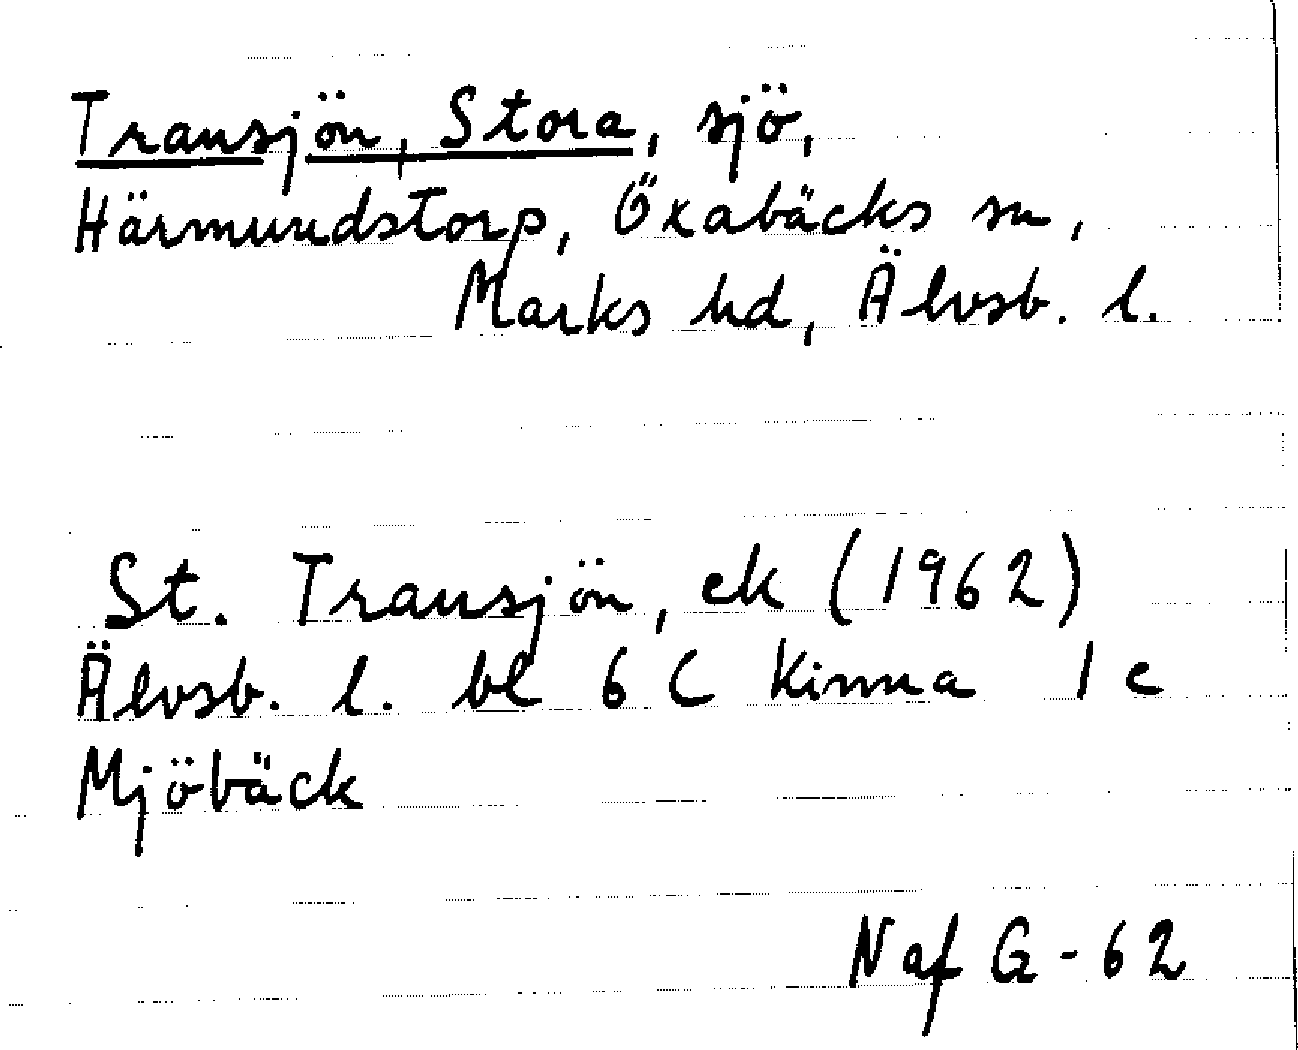 Transjön, Stora, sjö,
Härmundstorp, Öxabäcks sn,
Marks hd, Älvsb. l.
St. Transjön, ek (1962)
Älvsb. l. bl 6 C Kinna 1 c
Mjöbäck
Naf G - 62